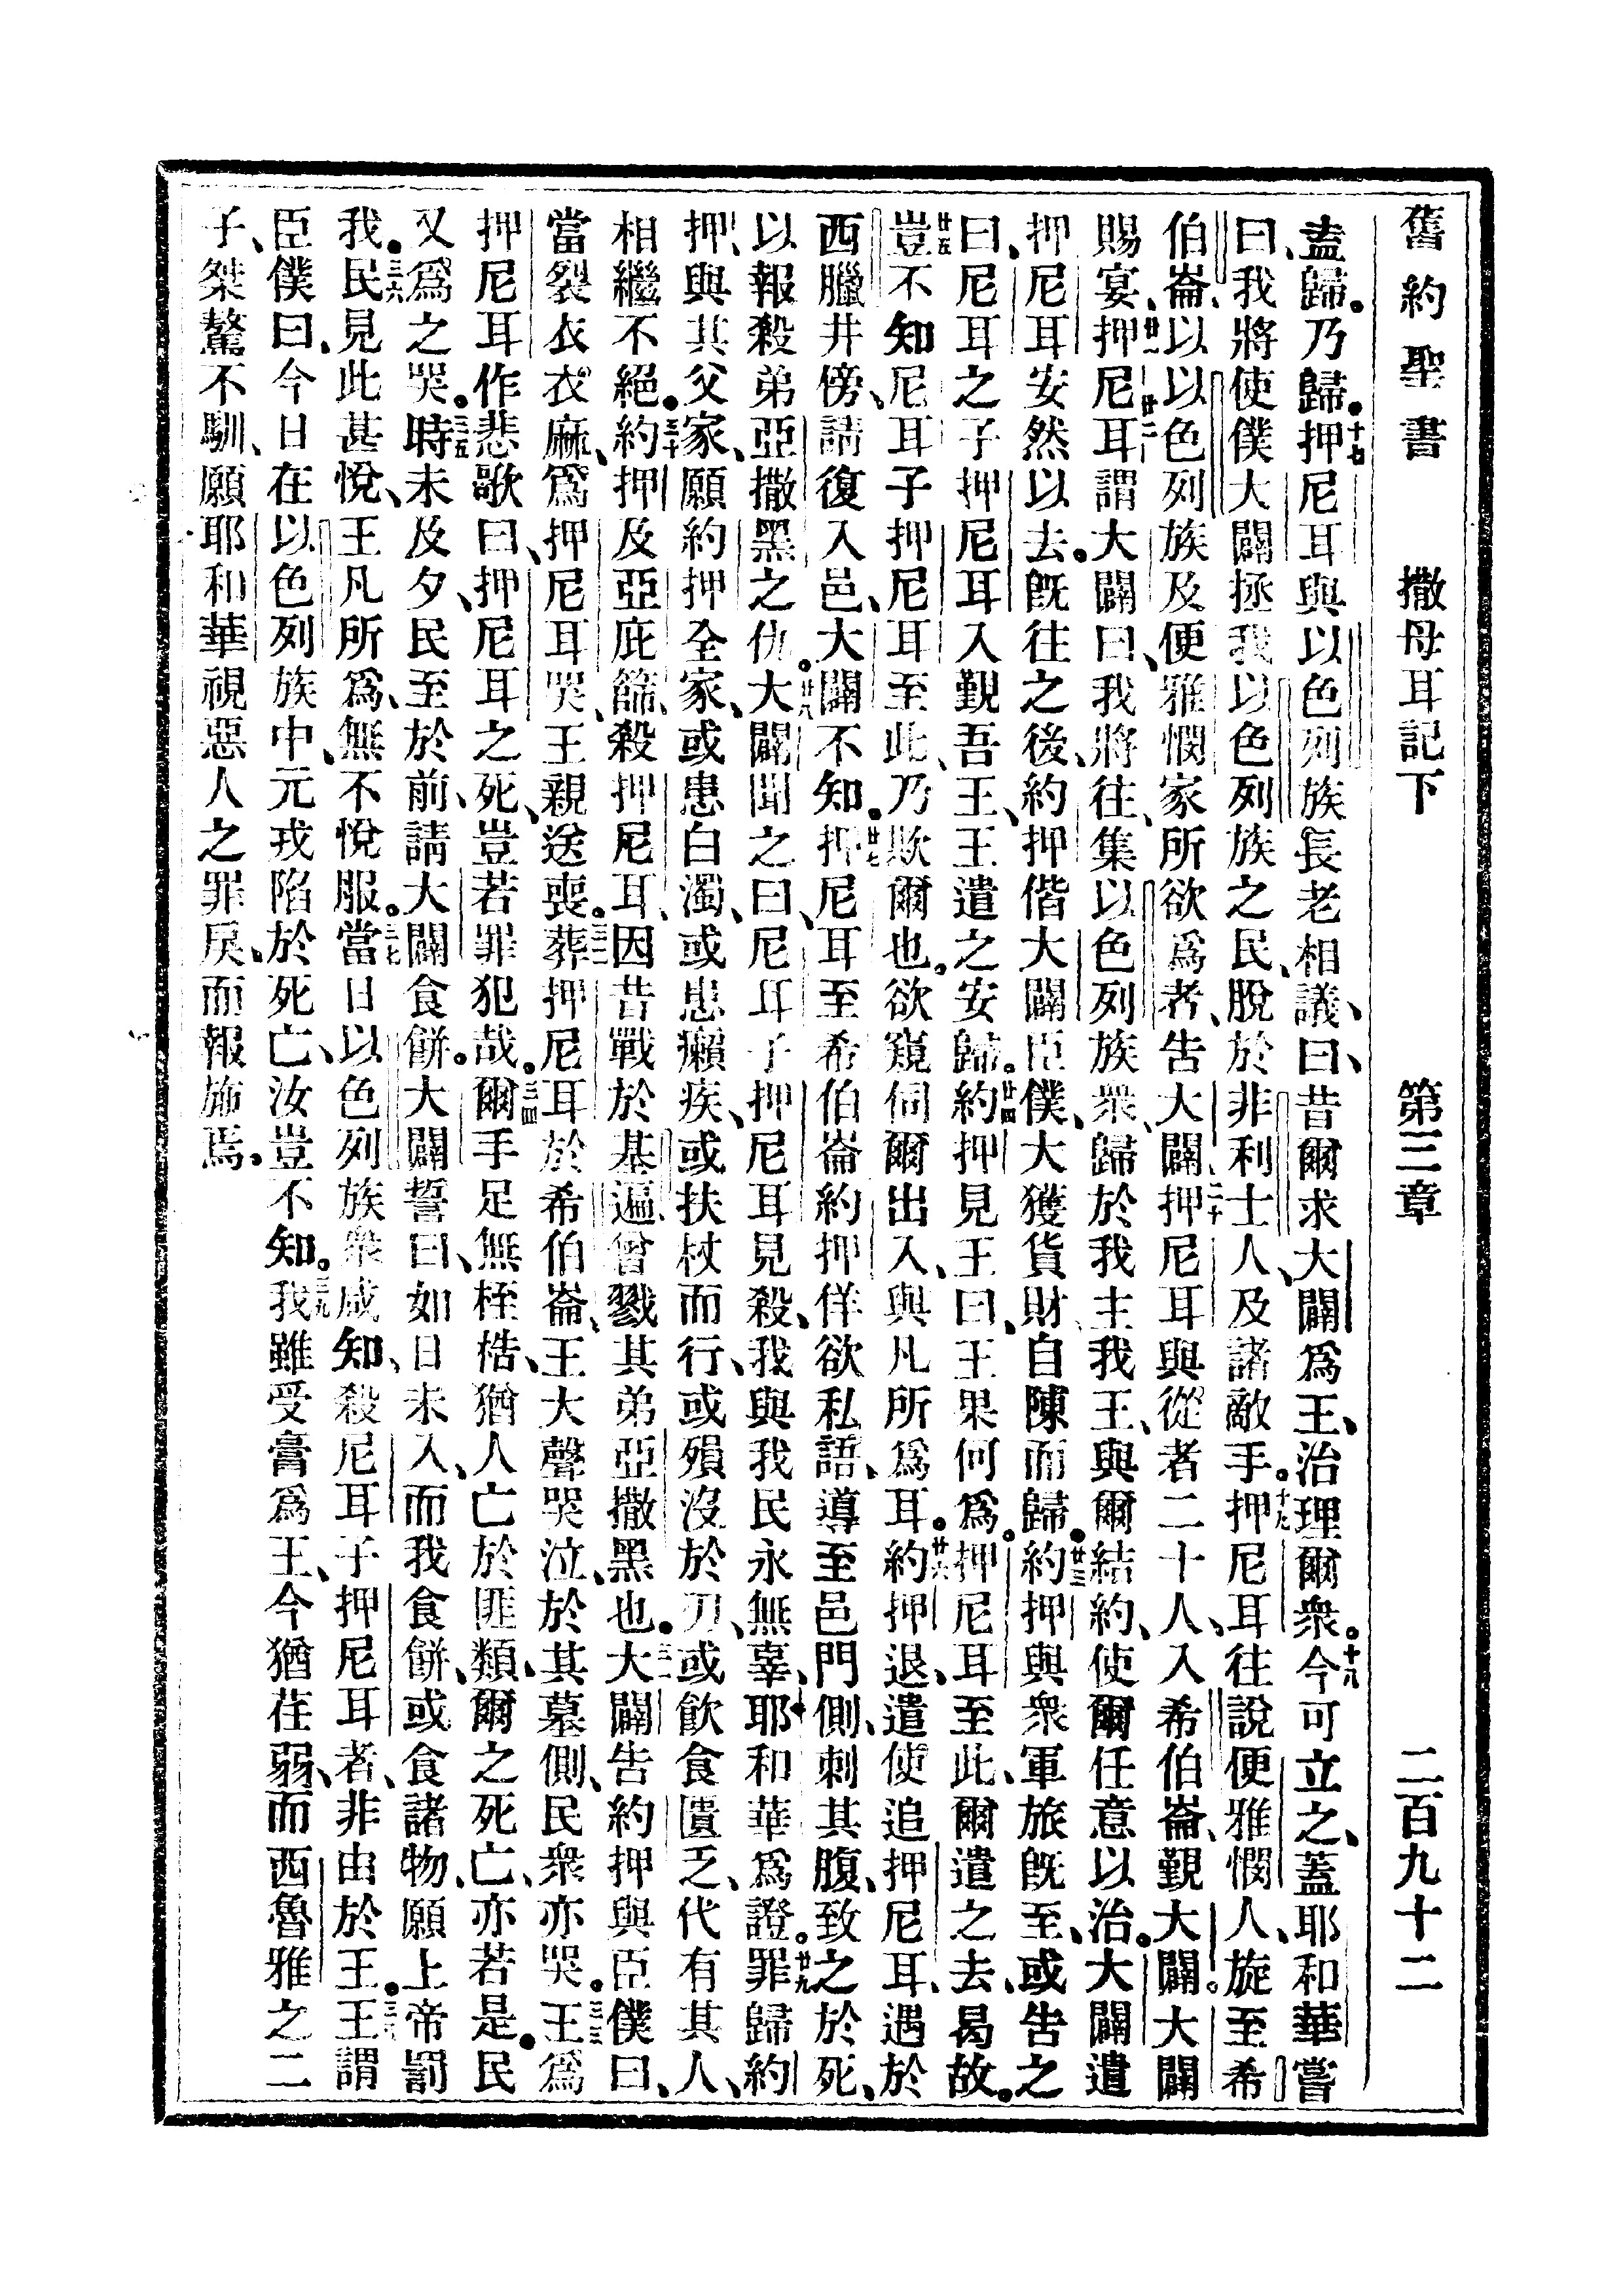 舊約聖書 撒母耳記下 第三章 二百九十二
盍歸。乃歸。十七押尼耳與以色列族長老相議、曰、昔爾求大闢爲王、治理爾衆。十八今可立之、蓋耶和華嘗
曰、我將使僕大闢拯我以色列族之民、脫於非利士人、及諸敵手。十九押尼耳往說便雅憫人、旋至希
伯崙、以以色列族及便雅憫家所欲爲者、告大闢、二十押尼耳與從者二十人、入希伯崙、覲大闢。大闢
賜宴、廿一押尼耳謂大闢曰、我將往、集以色列族衆、歸於我主我王、與爾結約、使爾任意以治。大闢遣
押尼耳安然以去。廿二旣往之後、約押偕大闢臣僕、大獲貨財、自陳而歸。廿三約押與衆軍旅旣至、或告之
曰、尼耳之子押尼耳入覲吾王、王遣之安歸。廿四約押見王曰、王果何爲。押尼耳至此、爾遣之去、曷故。
廿五豈不知尼耳子押尼耳至此、乃欺爾也。欲窺伺爾出入、與凡所爲耳。廿六約押退、遣使追押尼耳、遇於
西臘井傍、請復入邑、大闢不知。廿七押尼耳至希伯崙、約押佯欲私語、導至邑門側、刺其腹、致之於死、
以報殺弟亞撒黑之仇。廿八大闢聞之曰、尼耳子押尼耳見殺、我與我民永無辜、耶和華爲證。廿九罪歸約
押、與其父家、願約押全家、或患白濁、或患癩疾、或扶杖而行、或殞沒於刀、或飲食匱乏、代有其人、
相繼不絕。三十約押及亞庇篩、殺押尼耳、因昔戰於基遍、曾戮其弟亞撒黑也。三一大闢告約押與臣僕曰、
當裂衣衣麻、爲押尼耳哭、王親送喪。三二葬押尼耳於希伯崙、王大聲哭泣、於其墓側、民衆亦哭。三三王爲
押尼耳作悲歌曰、押尼耳之死、豈若罪犯哉。三四爾手足無桎梏、猶人亡於匪類、爾之死亡、亦若是。民
又爲之哭。三五時未及夕、民至於前、請大闢食餅。大闢誓曰、如日未入、而我食餅、或食諸物、願上帝罰
我。三六民見此甚悅、王凡所爲、無不悅服。三七當日以色列族衆咸知、殺尼耳子押尼耳者、非由於王。三八王謂
臣僕曰、今日在以色列族中、元戎陷於死亡、汝豈不知。三九我雖受膏爲王、今猶荏弱、而西魯雅之二
子、桀驁不馴、願耶和華視惡人之罪戾、而報施焉。